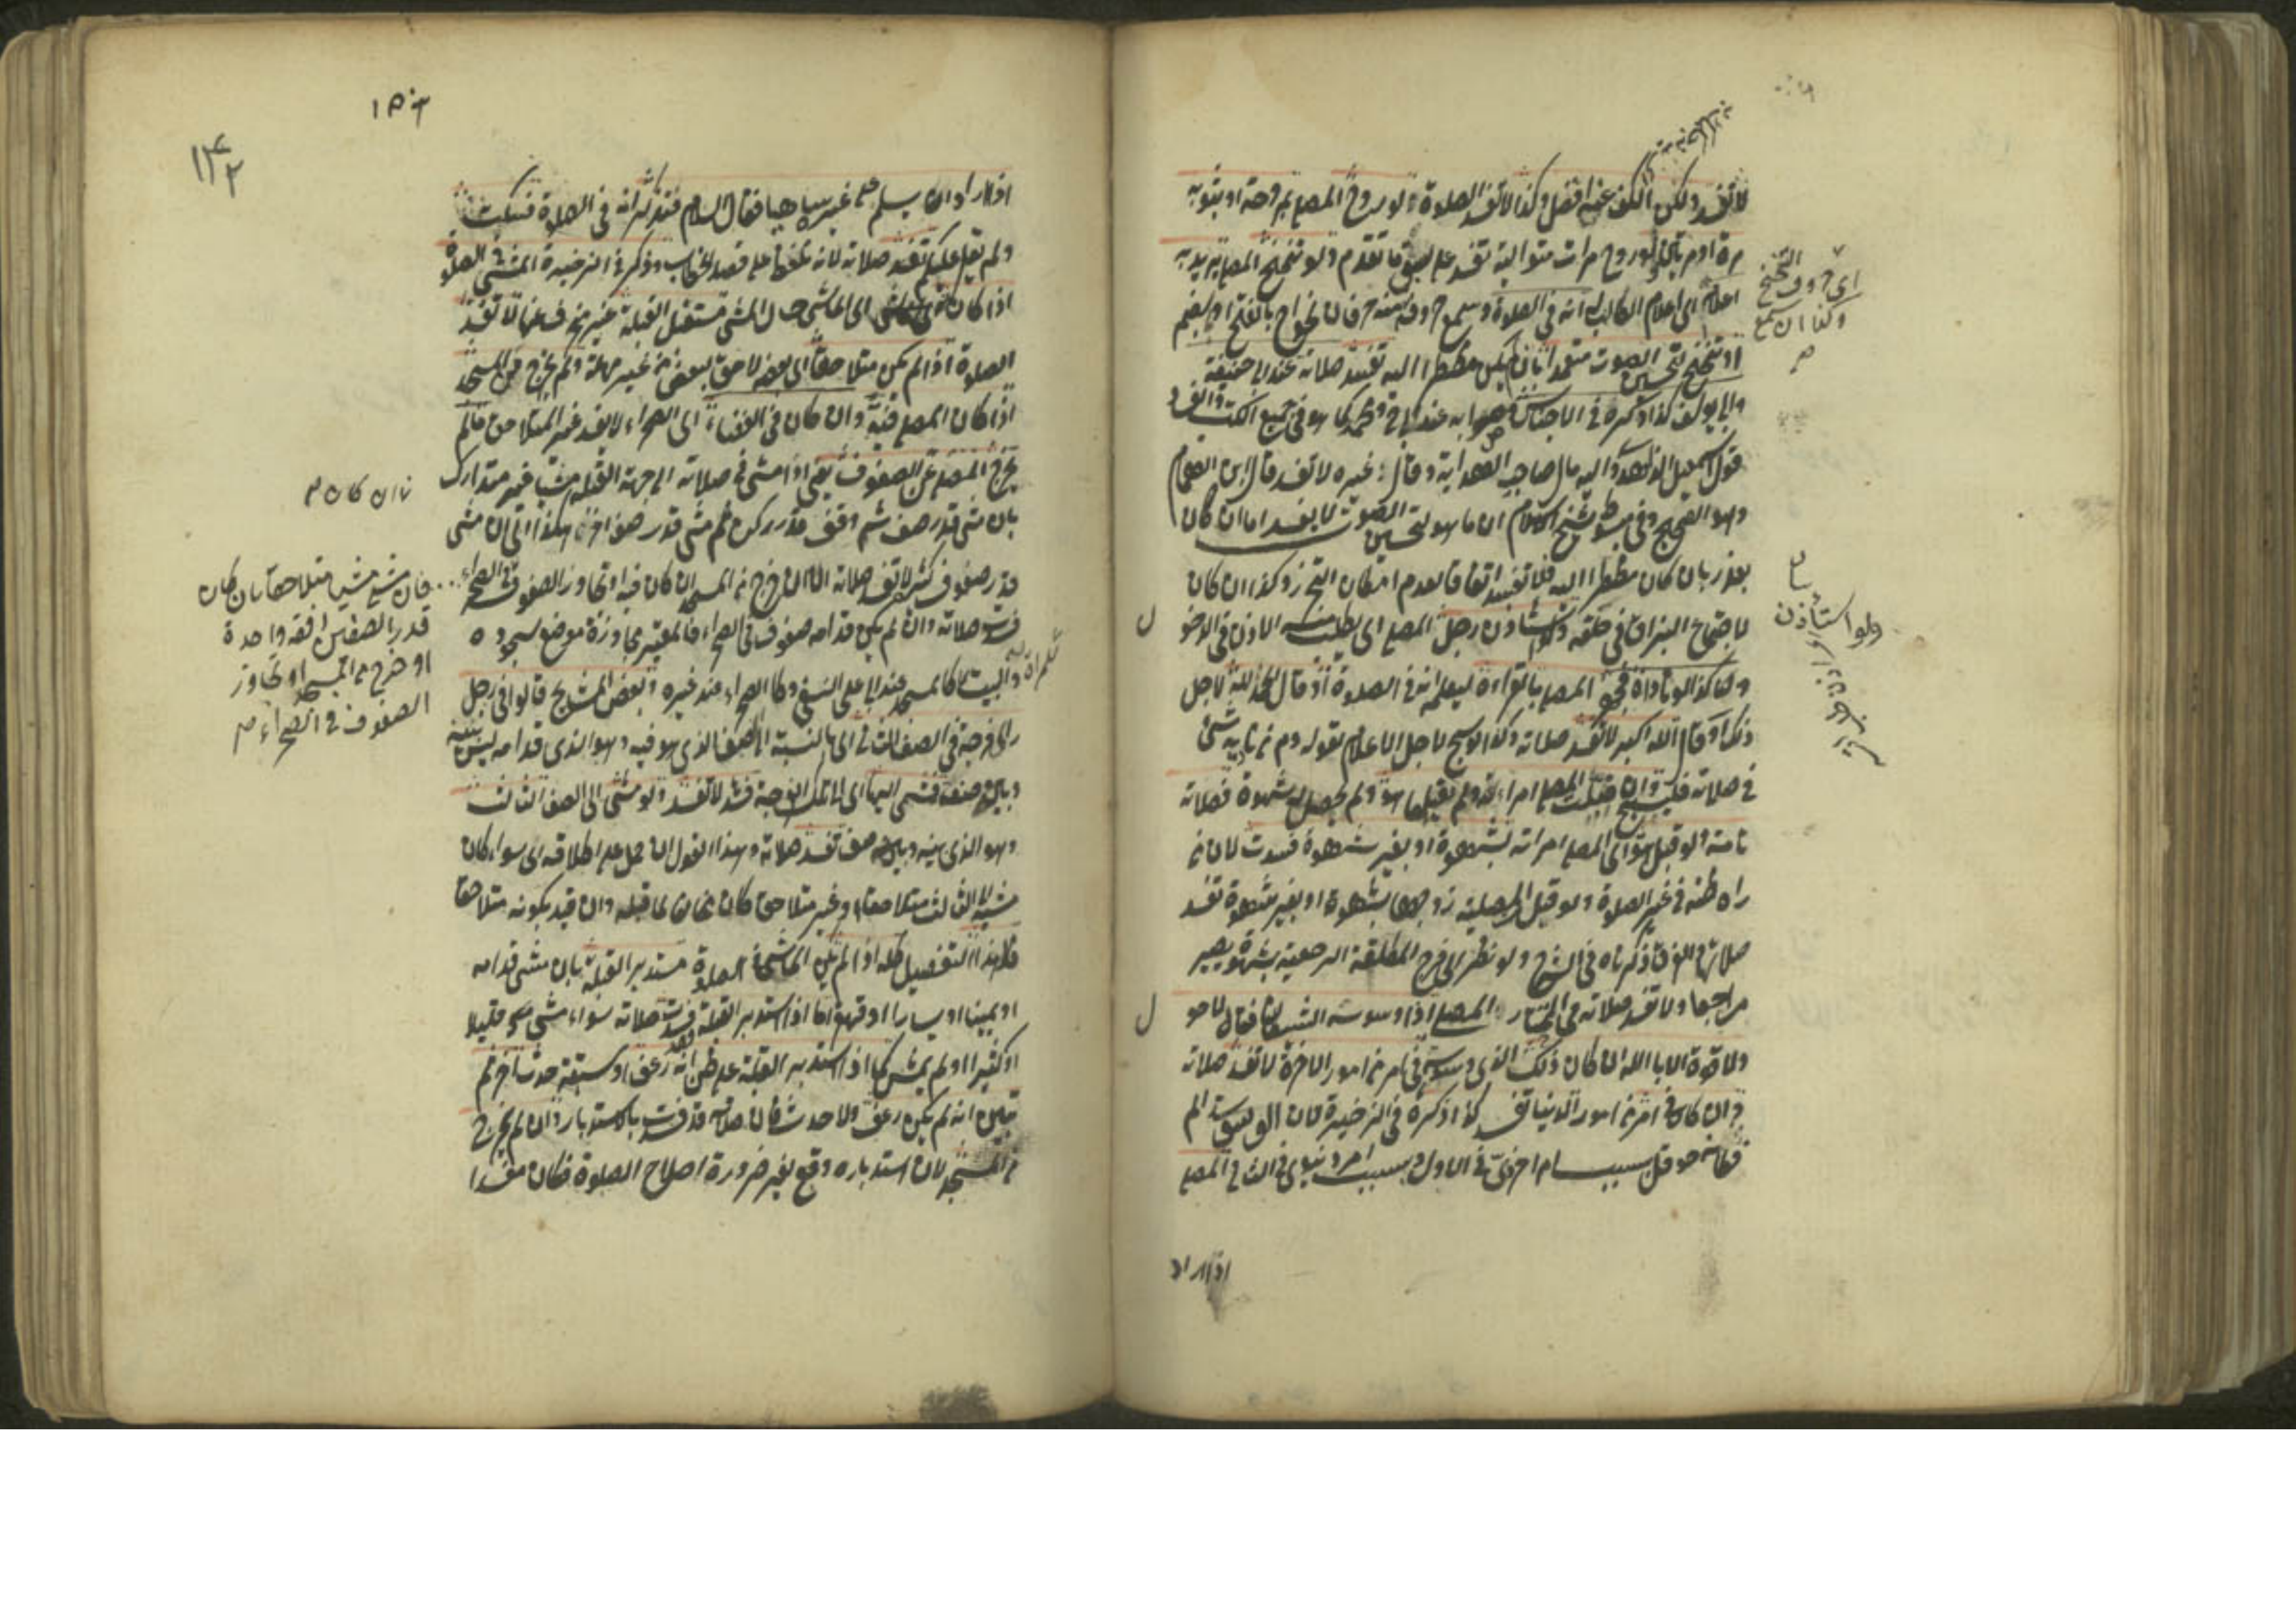 لا تفسد ولكن الكف عنه افضل وكذا لا تفسد الصلوة ولو روح المصلي بمروحة او بثوبه
مرة او مرتين ولو روح مرات متوالية تفسد على ما تقدم ولو تنحنح المصلي يريد به
اعلامه اى اعلام الطالب انه في الصلوة وسمع حروفه فان نحو اح بالفتح او بالضم
او تنحنح لتحسين الصوت متعمدا بان لم يكن مضطرا اليه تفسد صلاته عند ابى حنيفة
وابى يوسف كذا ذكره في الاجناس وصوابه عند ابى ح ومحمد كما هو في جميع الكتب
قول اسمعيل الزاهد واليه مال صاحب الهداية وقال غيره لا تفسد قال ابن الهمام
وهو الصحيح وفي مبسوط شيخ الاسلام ان ما هو لتحسين الصوت لا يفسد اما ان كان
بعذر بان كان مضطرا اليه فلا تفسد اتفاقا لعدم امكان التحرز وكذا ان كان
لاجتماع البزاق في حلقه ولو استاذن رجل المصلي اى يطلب منه الاذن في الدخول
وكذا لو ناداه فجهر المصلي بالقراءة ليعلمه انه في الصلوة او قال الحمد لله لاجل
ذلك او قال الله اكبر لا تفسد صلاته وكذا لو سبح لاجل الاعلام لقوله عم من نابه شئ
في صلاته فليسبح وان قبلت المصلي امراته ولم يقبلها هو ولم يحصل له شهوة فصلاته
تامة ولو قبل هو اى المصلي امراته بشهوة او بغير شهوة فسدت لان من
راه ظنه في غير الصلوة ولو قبل المصلية زوجها بشهوة او بغير شهوة تفسد
صلاتها والفرق ذكرناه في الشرح ولو نظر الى فرج المطلقة الرجعية بشهوة يصير
مراجعا ولا تفسد صلاته في المختار المصلي اذا وسوسه الشيطان فقال لا حول
ولا قوة الا بالله ان كان ذلك الذى وسوس في امر من امور الاخرة لا تفسد صلاته
وان كان في امر من امور الدنيا تفسد كذا ذكره في الذخيرة لان
فكانه حوقل بسبب امر اخروى في الاول وبسبب امر دنيوى في الثاني المصلي
اذا اراد
اى حروف التنحنح
وكذا ان سمع
ولو استأذن
١٥٣
١٤٢
اذا اراد ان يسلم على غيره ساهيا فقال السلام فتذكر انه في الصلوة فسكت
ولم يقل عليكم تفسد صلاته لانه تلفظ على قصد الخطاب وذكر في الذخيرة المشى في الصلوة
اذا كان اى الماشى حال المشى مستقبل القبلة غير منحرف عنها لا تفسد
الصلوة اذا لم يكن متلاحقا اى بعضه لاحق ببعض من غير مهلة ولم يخرج من المسجد
اذا كان المصلي فيه وان كان في الفضاء اى الصحراء لا يفسد غير المتلاحق مالم
يخرج المصلي عن الصفوف يعنى اذا مشى في صلاته الى جهة القبلة مشيا غير متدارك
بان مشى قدر صف ثم وقف قدر ركن ثم مشى قدر صف اخر هكذا الى ان مشى
قدر صفوف كثيرة لا تفسد صلاته الا ان خرج من المسجد ان كان فيه او تجاوز الصفوف في الصحراء
فسدت صلاته وان لم يكن قدامه صفوف في الصحراء فالمعتبر مجاوزة موضع سجوده
والبيت للمراة كالمسجد عند ابى على النسفي وكالصحراء عند غيره وبعض المشايخ قالوا في رجل
راى فرجة في الصف الثاني اى بالنسبة الى الصف الذى هو فيه وهو الذى قدامه ليس بينه
وبينه صف فمشى اليها اى الى تلك الفرجة فسد لا تفسد ولو مشى الى الصف الثالث
وهو الذى بينه وبينه صف تفسد صلاته وهذا القول ان حمل على اطلاقه اى سواء كان
مشيه الى الثالث متلاحقا او غير متلاحق كان مخالفا لما قبله وان قيد بكونه متلاحقا
فلا هذا التفصيل كله اذا لم يكن الماشى في الصلوة مستدبر القبلة بان مشى قدامه
او يمينا او يسارا او قهقرى اما اذا استدبر القبلة فسدت صلاته سواء مشى قليلا
او كثيرا او لم يمش كما اذا استدبر القبلة على ظن انه رعف او سبقه حدث اخر ثم
تبين انه لم يكن رعف ولا حدث فان صلاته قد فسدت بالاستدبار وان لم يخرج
من المسجد لان استدباره وقع لغير ضرورة اصلاح الصلوة فكان مفسدا
وان كان
فان مشى مشيا متلاحقا بان كان
قدر الصفين دفعة واحدة
او خرج من المسجد او تجاوز
الصفوف في الصحراء